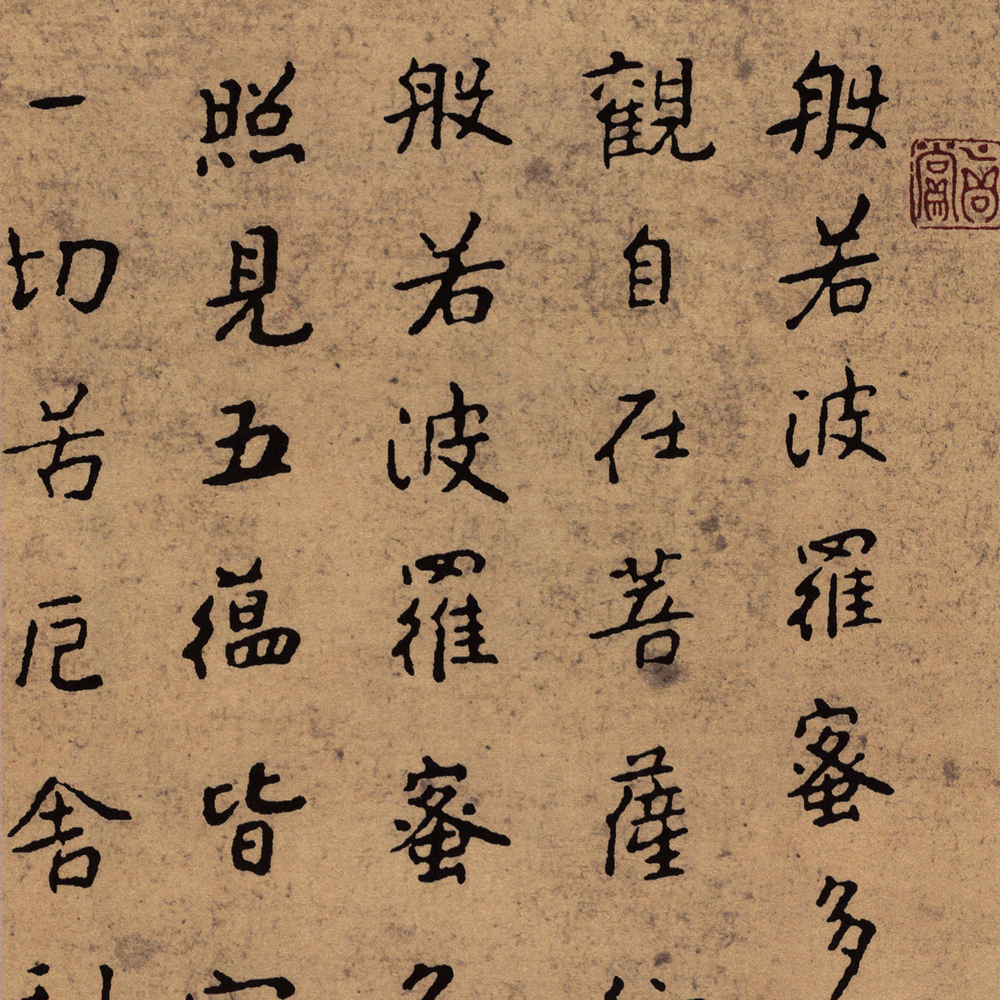 般若波羅蜜多
觀自在菩薩
般若波羅蜜多
照見五蘊皆
一切苦厄舍